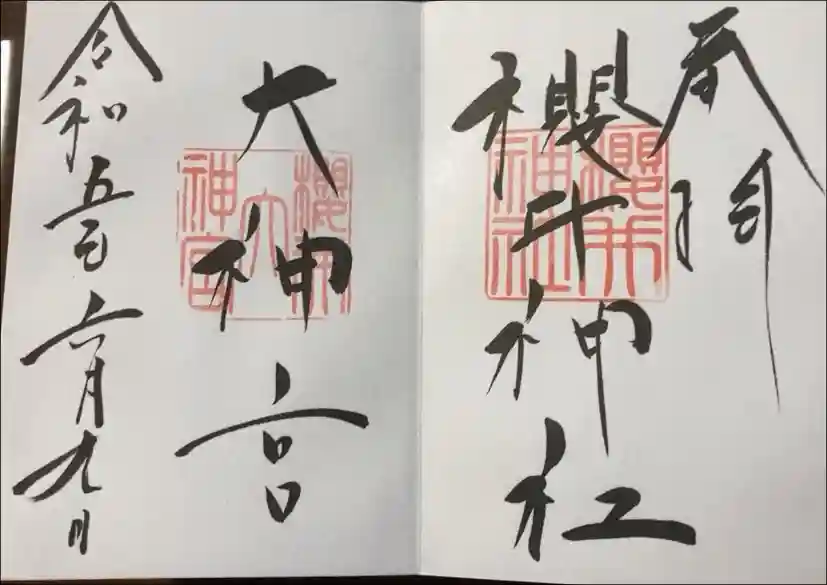 奉拝
櫻井神社
櫻井
神社
大神宮
櫻井
大
神宮
令和五年六月九日